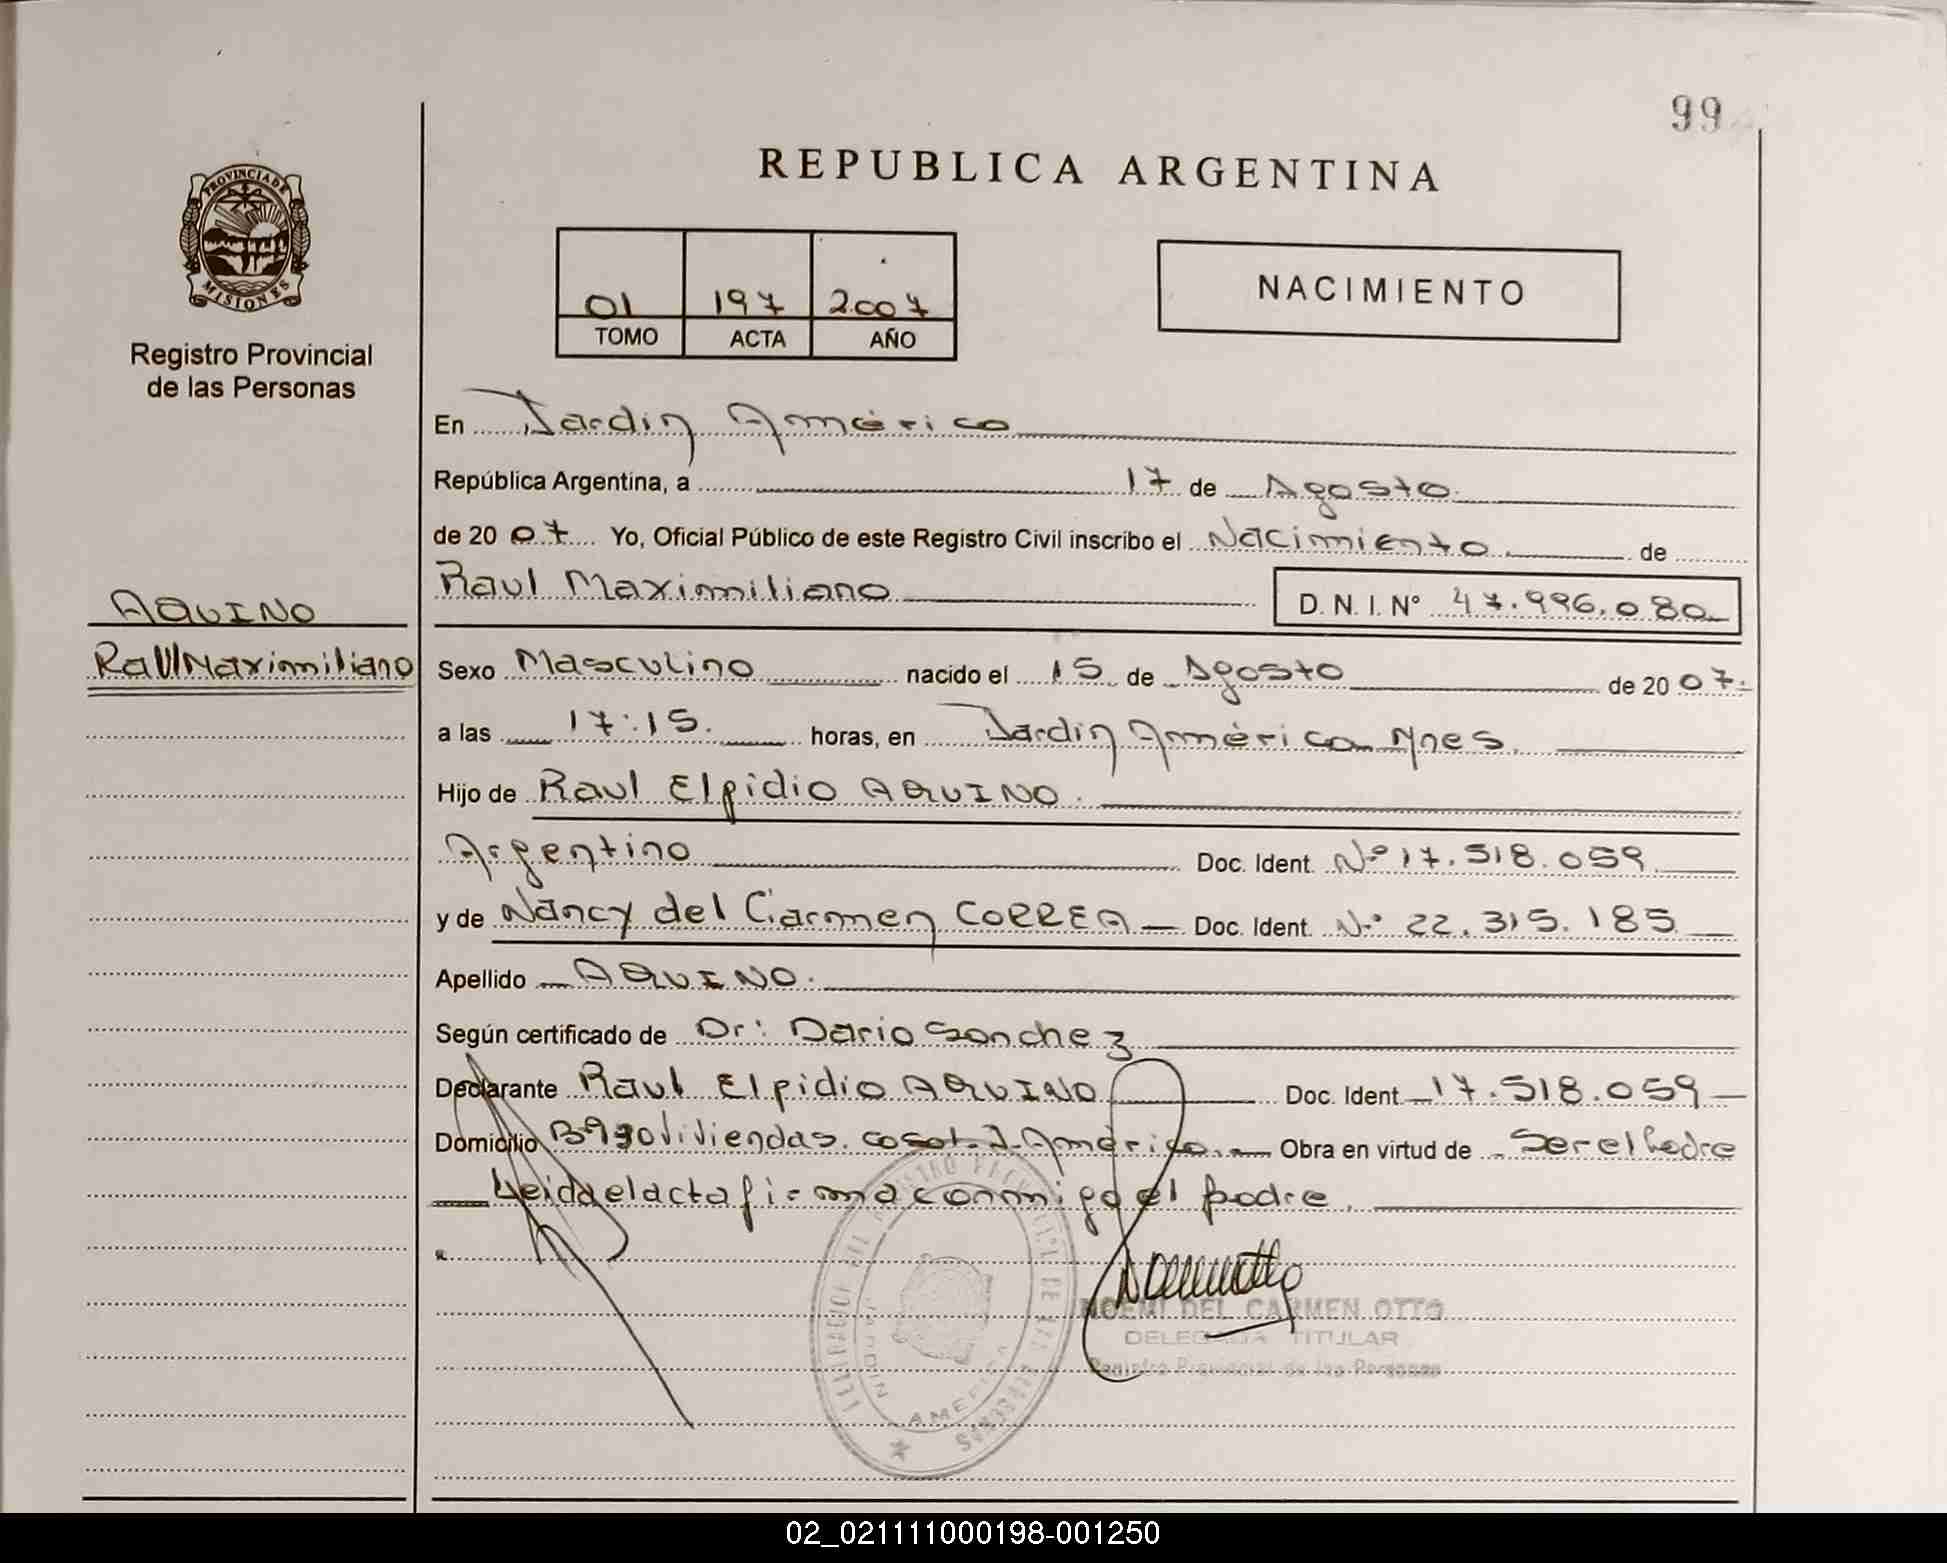 99
REPUBLICA ARGENTINA
PROVINCIA DE
MISIONES
Registro Provincial
de las Personas
01 197 2007
TOMO ACTA AÑO
NACIMIENTO
En Jardin América
República Argentina, a 17 de Agosto
de 2007 Yo, Oficial Público de este Registro Civil inscribo el Nacimiento de
Raul Maximiliano D. N. I. N° 47.996.080
AQUINO
Raul Maximiliano
Sexo Masculino nacido el 15 de Agosto de 2007
a las 17:15. horas, en Jardin América Mnes.
Hijo de Raul Elpidio AQUINO.
Argentino Doc. Ident. Nº 17.518.059
y de Nancy del Carmen CORREA Doc. Ident. Nº 22.315.185
Apellido AQUINO.
Según certificado de Dr: Dario Sanchez
Declarante Raul Elpidio AQUINO Doc. Ident. 17.518.059
Domicilio Bº 90 Viviendas. J. América. Obra en virtud de Ser el Padre
Leida el acta firma conmigo el padre.
NOEMI DEL CARMEN OTTO
DELEGADA TITULAR
Registro Provincial de las Personas
JARDIN AMERICA
02_021111000198-001250